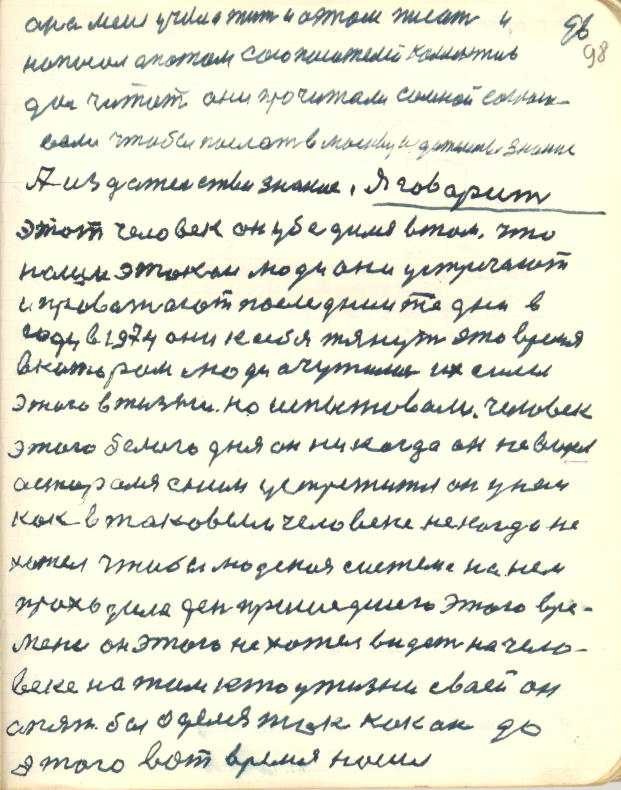 она меня учила жит и потом писат и 96
98
написал а потом сого писателей коллектив
дал читат они прочитали самной
вали чтобы послат в москву в знание
А издателстви знание. Я говарит
этот человек он убедился втом. что
наши этокои люди они устречают
и проважают последнии те дни в
году в 1974 они ксебя тянут это время
вкатором люди очутили их силы
этого вжизни. но испытовали. человек
этого белого дня он никогда он не видел
астараля сним устретится он унем
как в таковым человеке некогда не
хотел чтобы людская система на нем
проходила ден пришедшего этого вре-
мени он этого не хотел видет на чело-
веке на том кто ужизни сваей он
опят. был оделся так как он до
этого вот время носил